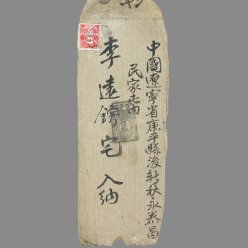 中國遼寧省康平縣後新秋永泰昌
民家屯由
李遠鐸宅入納